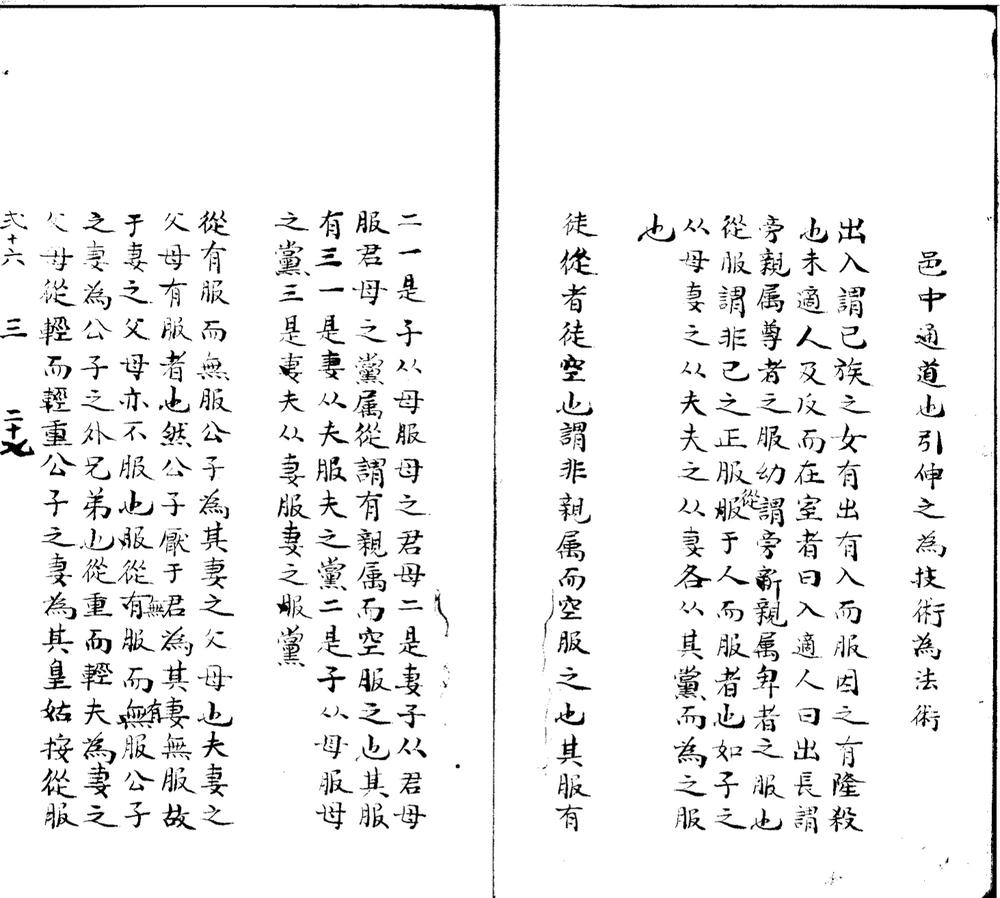 邑中通道也引伸之為技術為法術
出入謂已族之女有出有入而服因之有隆殺
也未適人及反而在室者曰入適人曰出長謂
旁親属尊者之服幼謂旁親属卑者之服也
從服謂非已之正服從服于人而服者也如子之
从母妻之从夫夫之从妻各从其黨而為之服
也
徒從者徒空也謂非親属而空服之也其服有
二一是子从母服母之君母二是妻子从君母
服君母之黨属從謂有親属而空服之也其服
有三一是妻从夫服夫之黨二是子从母服母
之黨三是妻夫从妻服妻之服黨
從有服而無服公子為其妻之父母也夫妻之
父母有服者也然公子厭于君為其妻無服故
于妻之父母亦不服也服從無有服而有無服公子
之妻為公子之外兄弟也從重而輕夫為妻之
父母從輕而輕重公子之妻為其皇姑按從服
弍十六 三 二十七